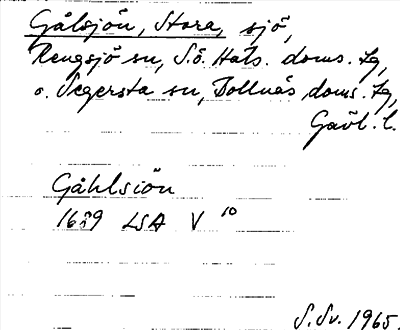 Gålsjön, Stora, sjö,
Rengsjö sn, S.ö. Häls. doms. Lg,
o. Segersta sn, Bollnäs doms. Lg,
Gävl. l.
Gåhlsiön
1639 LSA V 10
S. Sv. 1965.